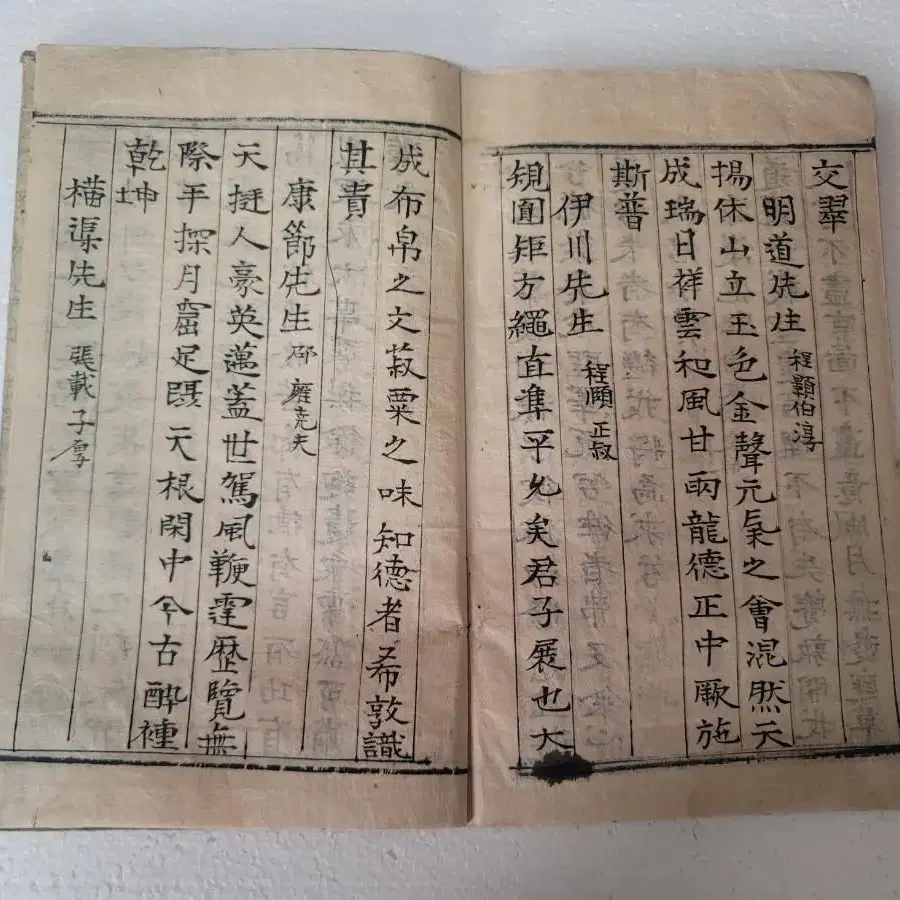 交翠
明道先生 程顥伯淳
揚休山立玉色金聲元氣之會混然天
成瑞日祥雲和風甘雨龍德正中厥施
斯普
伊川先生 程頤正叔
規圓矩方繩直準平允矣君子展也大
成布帛之文菽粟之味知德者希孰識
其貴
康節先生 邵雍堯夫
天挺人豪英邁蓋世駕風鞭霆歷覽無
際手探月窟足躡天根閑中今古醉裡
乾坤
橫渠先生 張載子厚